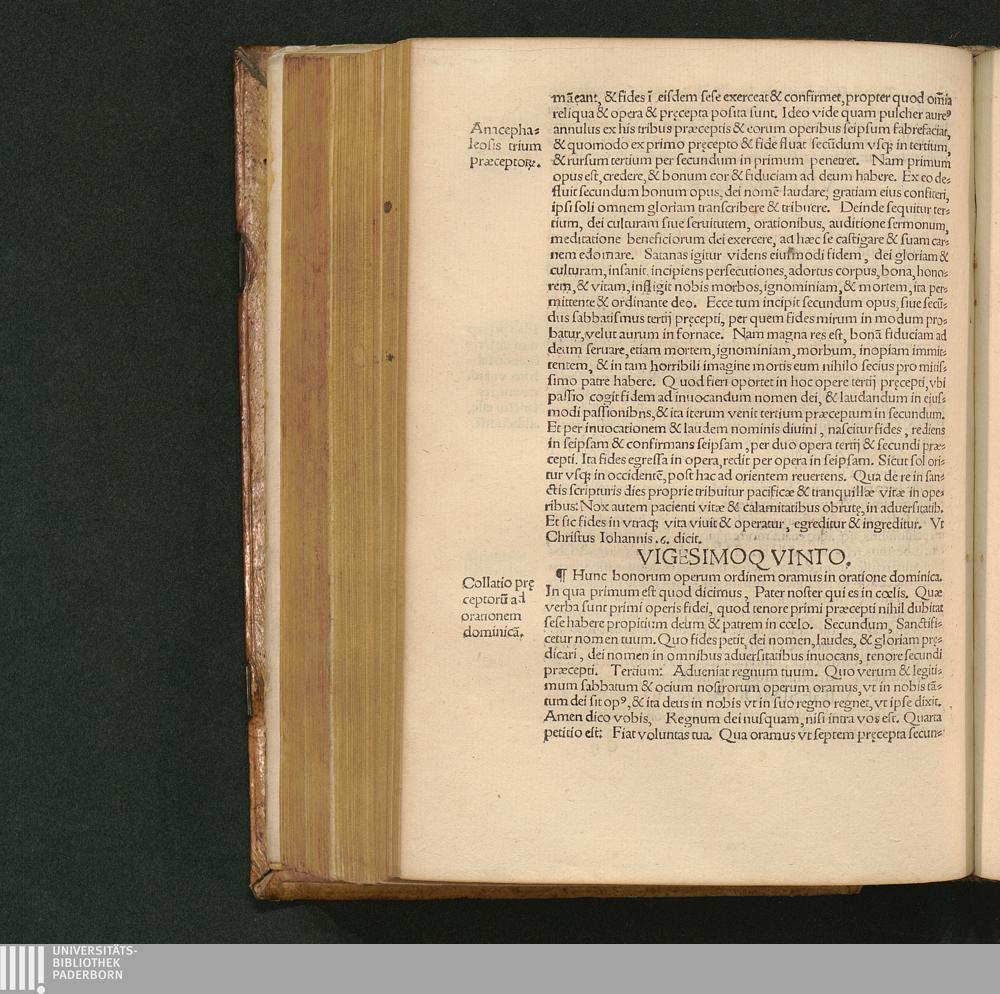 mãeant, & fides ī eisdem sese exerceat & confirmet, propter quod om̄ia
reliqua & opera & pręcepta posita sunt. Ideo vide quam pulcher aureꝰ
Anacepha-
leosis trium
præceptoꝝ.
annulus ex his tribus præceptis & eorum operibus seipsum fabrefaciat,
& quomodo ex primo pręcepto & fide fluat secūdum vsqꝫ in tertium,
& rursum tertium per secundum in primum penetret. Nam primum
opus est, credere, & bonum cor & fiduciam ad deum habere. Ex eo de-
fluit secundum bonum opus, dei nomē laudare, gratiam eius confiteri,
ipsi soli omnem gloriam transcribere & tribuere. Deinde sequitur ter-
tium, dei culturam siue seruitutem, orationibus, auditione sermonum,
meditatione beneficiorum dei exercere, ad hæc se castigare & suam car-
nem edomare. Satanas igitur videns eiusmodi fidem, dei gloriam &
culturam, insanit, incipiens persecutiones, adortus corpus, bona, hono-
rem, & vitam, infligit nobis morbos, ignominiam, & mortem, ita per-
mittente & ordinante deo. Ecce tum incipit secundum opus, siue secū-
dus sabbatismus tertij pręcepti, per quem fides mirum in modum pro-
batur, velut aurum in fornace. Nam magna res est, bonā fiduciam ad
deum seruare, etiam mortem, ignominiam, morbum, inopiam immit-
tentem, & in tam horribili imagine mortis eum nihilo secius pro mitis-
simo patre habere. Quod fieri oportet in hoc opere tertij pręcepti, vbi
passio cogit fidem ad inuocandum nomen dei, & laudandum in eius-
modi passionibns, & ita iterum venit tertium præceptum in secundum.
Et per inuocationem & laudem nominis diuini, nascitur fides, rediens
in seipsam & confirmans seipsam, per duo opera tertij & secundi præ-
cepti. Ita fides egressa in opera, redit per opera in seipsam. Sicut sol ori-
tur vsqꝫ in occidentē, post hac ad orientem reuertens. Qua de re in san-
ctis scripturis dies proprie tribuitur pacificæ & tranquillæ vitæ in ope-
ribus: Nox autem pacienti vitæ & calamitatibus obrutę, in aduersitatib.
Et sic fides in vtraqꝫ vita viuit & operatur, egreditur & ingreditur. Vt
Christus Iohannis .6. dicit.
VIGESIMOQVINTO.
Collatio prę
ceptorū ad
orationem
dominicā.
¶ Hunc bonorum operum ordinem oramus in oratione dominica.
In qua primum est quod dicimus, Pater noster qui es in cœlis. Quæ
verba sunt primi operis fidei, quod tenore primi præcepti nihil dubitat
sese habere propitium deum & patrem in cœlo. Secundum, Sanctifi-
cetur nomen tuum. Quo fides petit, dei nomen, laudes, & gloriam prę-
dicari, dei nomen in omnibus aduersitatibus inuocans, tenore secundi
præcepti. Tertium: Adueniat regnum tuum. Quo verum & legiti-
mum sabbatum & ocium nostrorum operum oramus, vt in nobis tā-
tum dei sit opꝰ, & ita deus in nobis vt in suo regno regnet, vt ipse dixit.
Amen dico vobis, Regnum dei nusquam, nisi intra vos est. Quarta
petitio est: Fiat voluntas tua. Qua oramus vt septem pręcepta secun-
UNIVERSITÄTS-
BIBLIOTHEK
PADERBORN